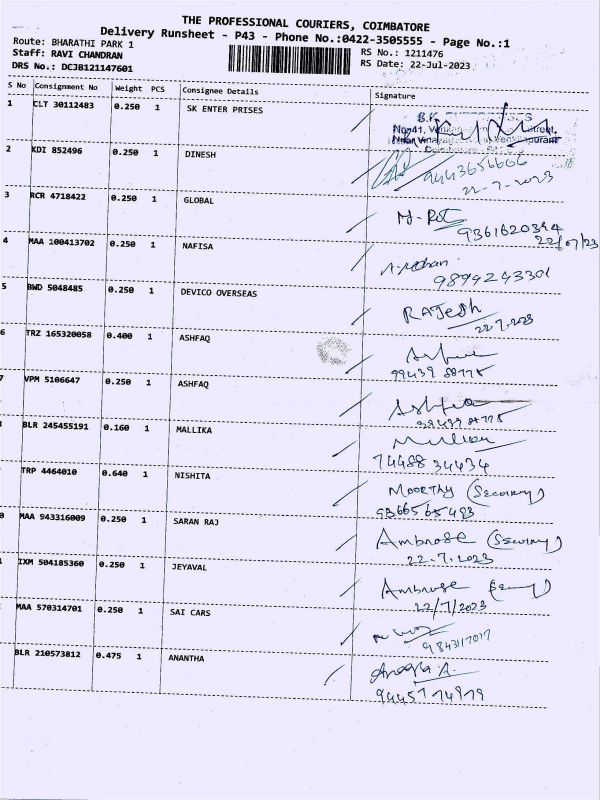 THE PROFESSIONAL COURIERS, COIMBATORE
Delivery Runsheet - P43 - Phone No.:0422-3505555 - Page No.:1
Route: BHARATHI PARK 1
RS No.: 1211476
Staff: RAVI CHANDRAN
RS Date: 22-Jul-2023
DRS No.: DCJB121147601
S No Consignment No Weight PCS Consignee Details Signature
1 CLT 30112483 0.250 1 SK ENTER PRISES
2 KDI 852496 0.250 1 DINESH
9443656666
22-7-2023
3 RCR 4718422 0.250 1 GLOBAL
9361620394
22/07/23
4 MAA 100413702 0.250 1 NAFISA
9894243301
5 BWD 5048485 0.250 1 DEVICO OVERSEAS RAJESH
22.7.2023
6 TRZ 165320058 0.400 1 ASHFAQ
7 VPM 5106647 0.250 1 ASHFAQ
BLR 245455191 0.160 1 MALLIKA
74488 34434
TRP 4464010 0.640 1 NISHITA MOORTHY (Security)
9366565493
0 MAA 943316009 0.250 1 SARAN RAJ Ambrose (Security)
22.7.2023
IXM 504185360 0.250 1 JEYAVAL Ambrose
22/7/2023
MAA 570314701 0.250 1 SAI CARS
9843117017
BLR 210573812 0.475 1 ANANTHA